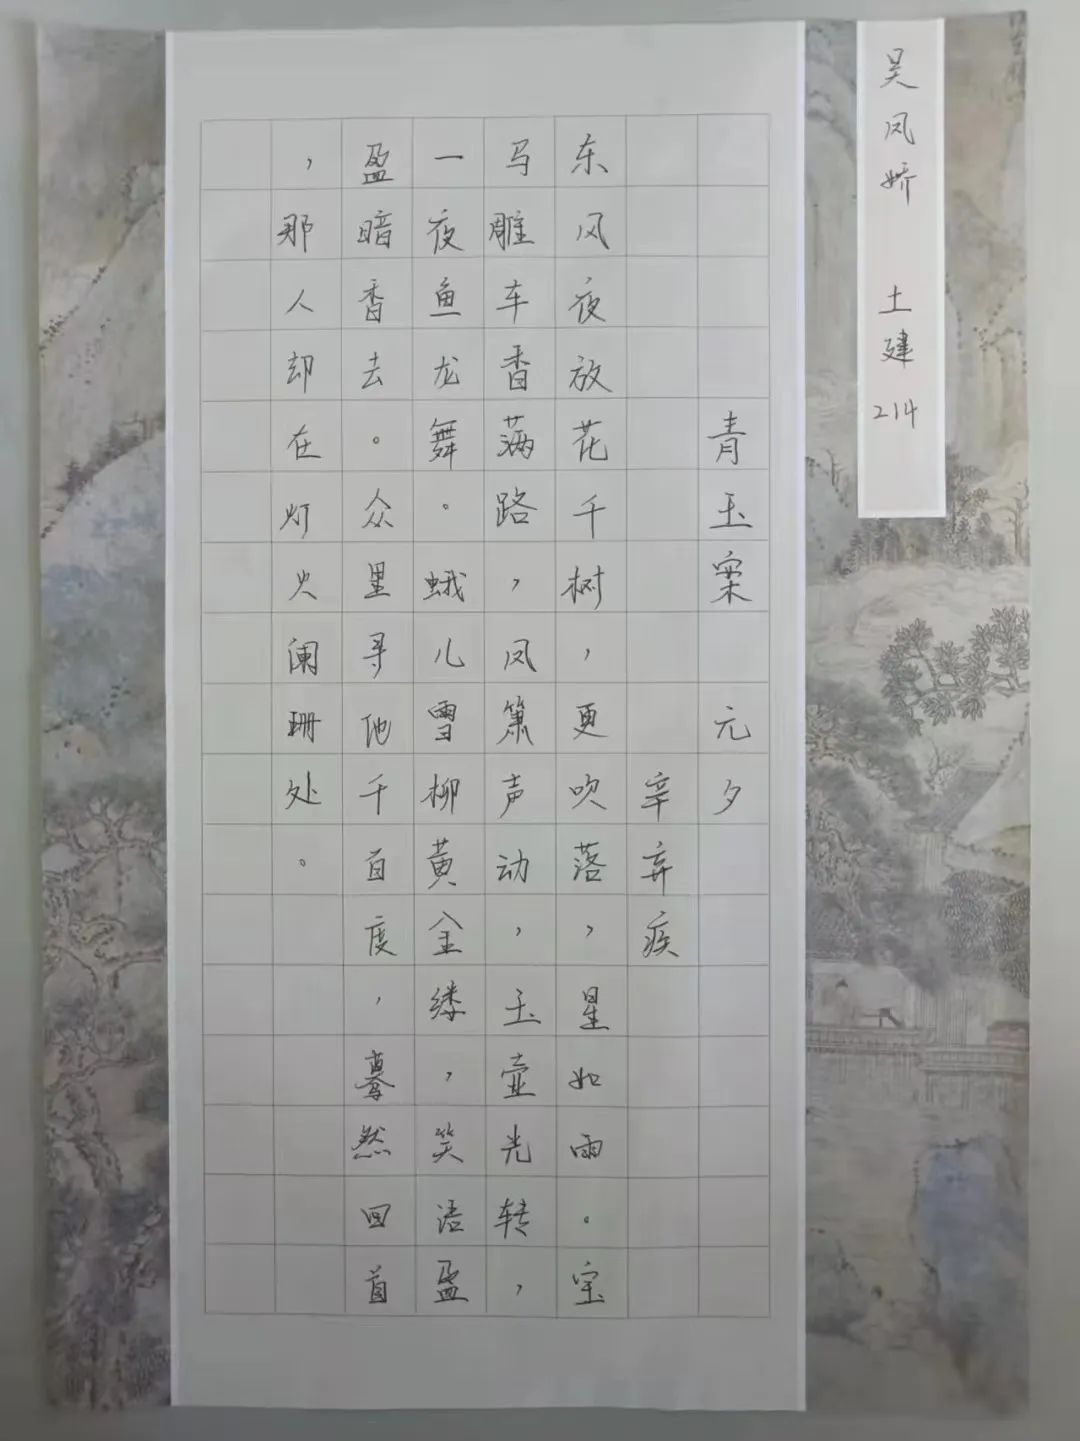 吴凤娇 土建214
青玉案 元夕
辛弃疾
东风夜放花千树，更吹落，星如雨。宝
马雕车香满路，凤箫声动，玉壶光转，
一夜鱼龙舞。蛾儿雪柳黄金缕，笑语盈
盈暗香去。众里寻他千百度，蓦然回首
，那人却在灯火阑珊处。